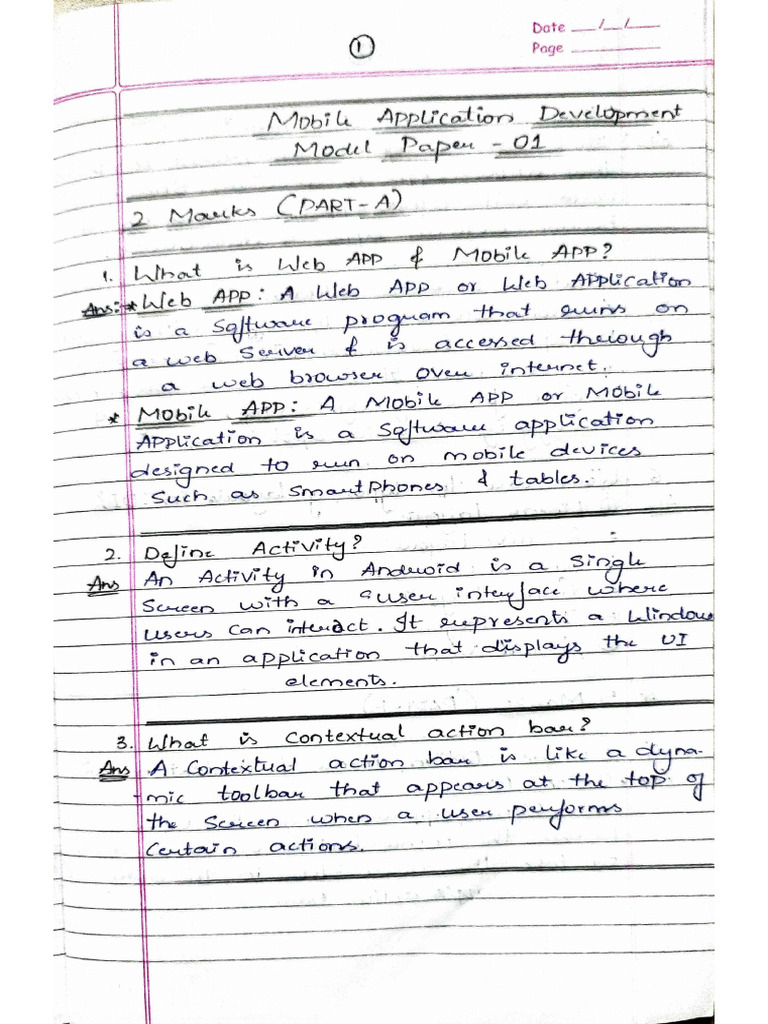 Date __/__/__
Page ______
1
Mobile Application Development
Model Paper - 01
2 Marks (PART-A)
1. What is Web APP & Mobile APP?
Ans:* Web APP: A Web APP or Web Application
is a Software program that runs on
a web Server & is accessed through
a web browser over internet.
* Mobile APP: A Mobile APP or Mobile
Application is a Software application
designed to run on mobile devices
Such as Smartphones & tables.
2. Define Activity?
Ans An Activity in Android is a Single
Screen with a user interface where
users can interact. It represents a Window
in an application that displays the UI
elements.
3. What is Contextual action bar?
Ans A Contextual action bar is like a dyna-
mic toolbar that appears at the top of
the Screen when a user performs
Certain actions.